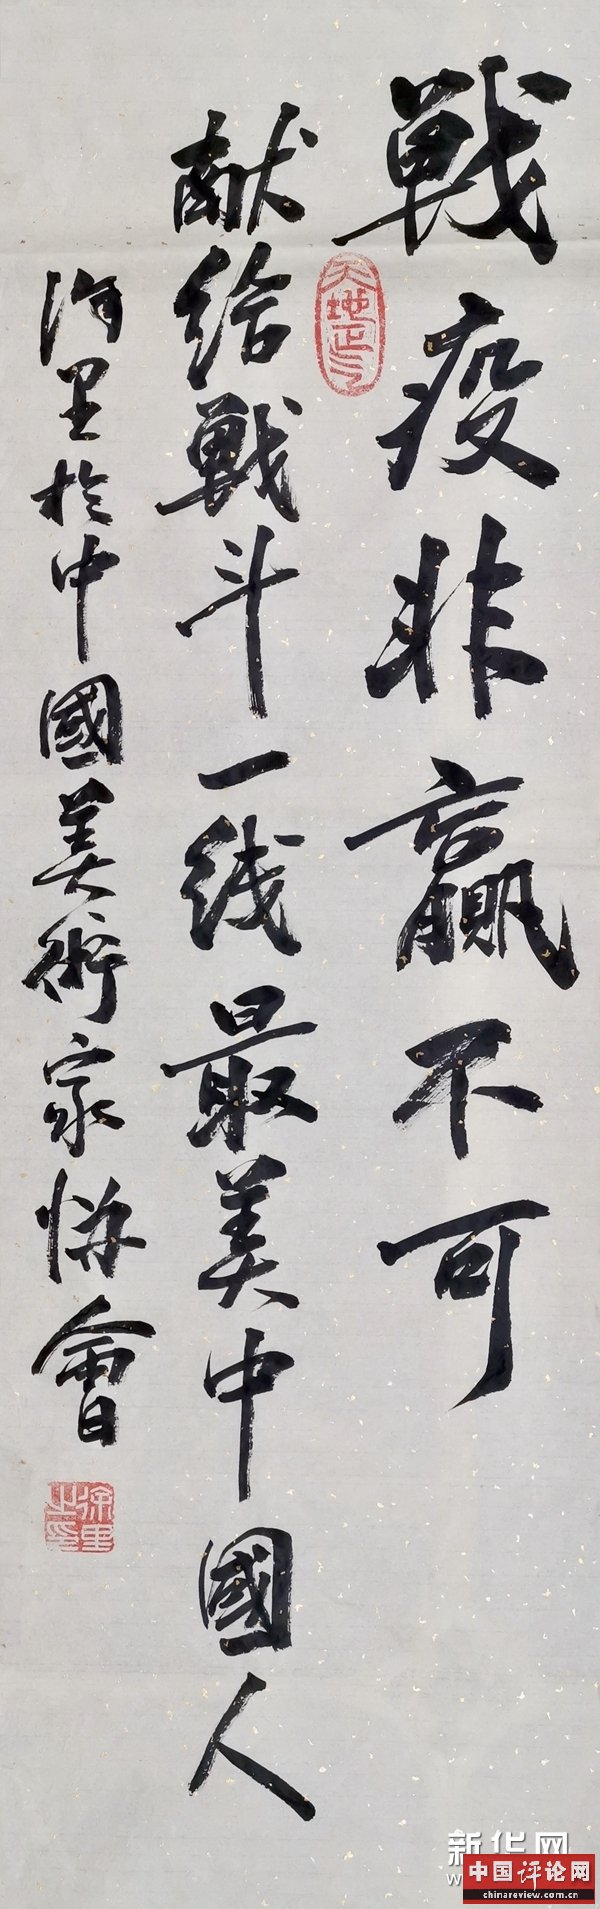 戰疫非贏不可
献给戰斗一线最美中國人
徐里於中國美術家协會
天地正气
徐里之印
新华网
中国评论网
chinareview.com.cn